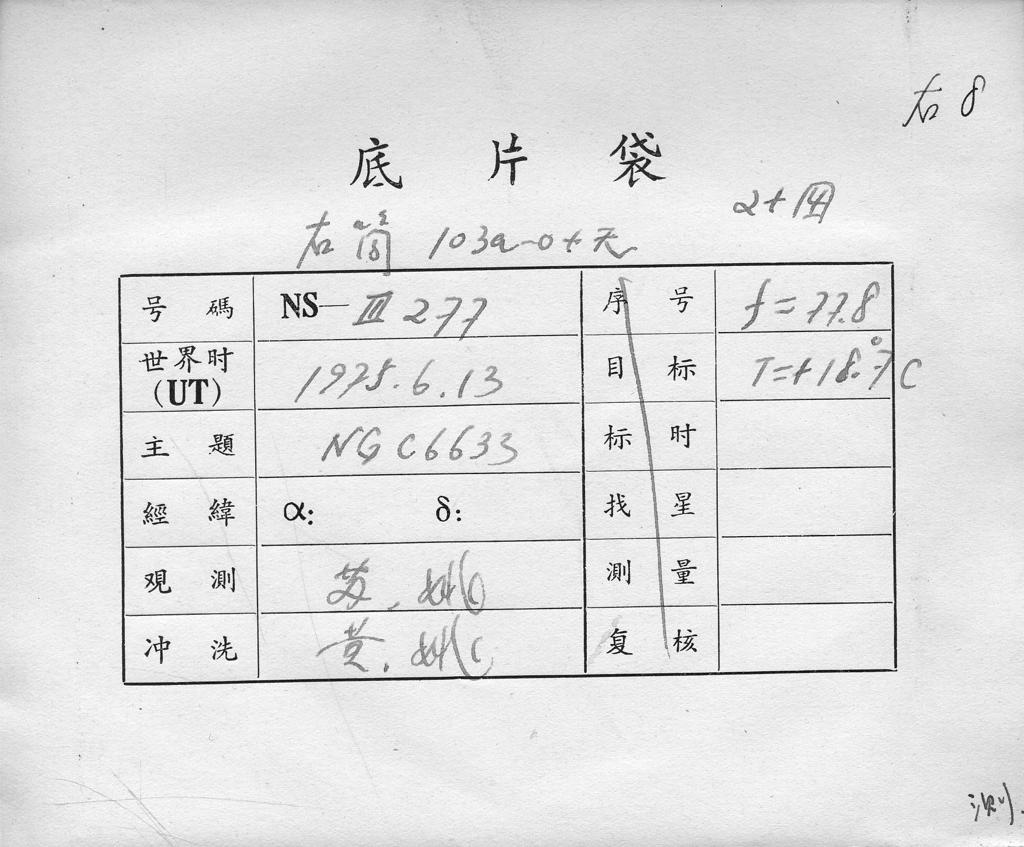 右 8
底片袋
2+
右筒 103a-0+天
号碼 NS—Ⅲ 277 序号 f=77.8
世界时(UT) 1975.6.13 目标 T=+18.°7C
主題 NGC6633 标时
經緯 α: δ: 找星
观測 苏、姚 測量
冲洗 黄、姚 复核
測.